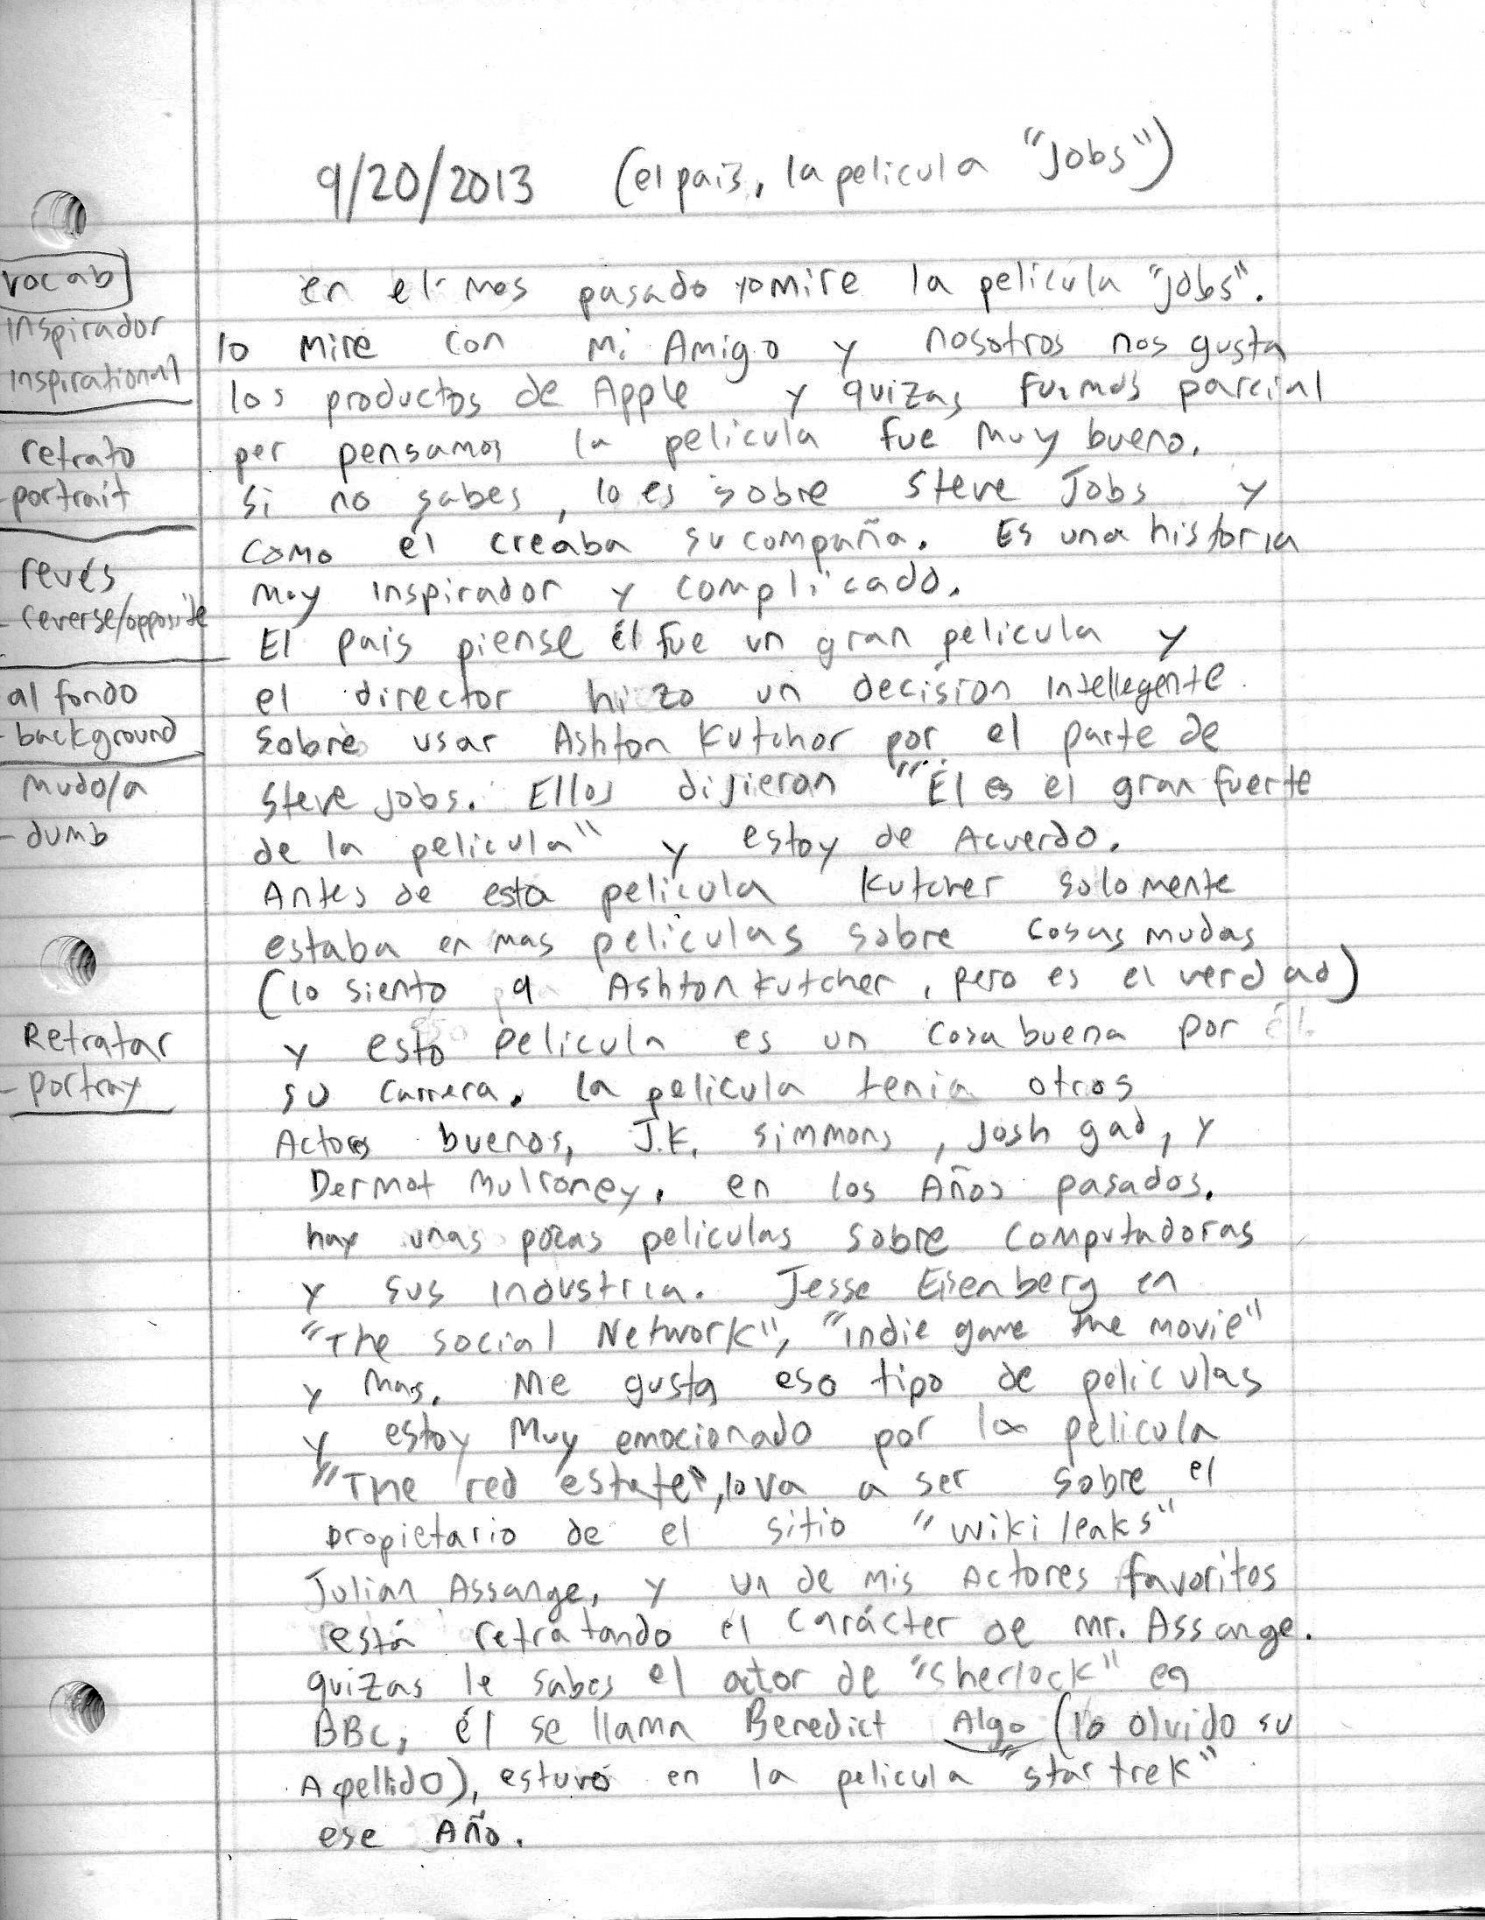 9/20/2013 (el pais, la pelicula "Jobs")
vocab
inspirador
inspirational
retrato
-portrait
revés
-reverse/opposite
al fondo
-background
mudo/a
-dumb
Retratar
-portray
en el mes pasado yo mire la pelicula "jobs".
lo mire con mi Amigo y nosotros nos gusta
los productos de Apple y quizas fuimos parcial
per pensamos la pelicula fue muy bueno.
si no sabes, lo es sobre Steve Jobs y
como él creaba su compaña. Es una historia
muy inspirador y complicado.
El pais piense él fue un gran pelicula y
el director hizo un decision intellegente
sobre usar Ashton Kutchor por el parte de
Steve jobs. Ellos dijieran "El es el gran fuerte
de la pelicula" y estoy de Acuerdo.
Antes de esta pelicula Kutcher solomente
estaba en mas peliculas sobre cosas mudas
(lo siento a Ashton Kutcher, pero es el verdad)
y esto pelicula es un cosa buena por
su carrera. la pelicula tenia otros
Actores buenos, J.K. Simmons, Josh gad, y
Dermot Mulroney. en los Años pasados.
hay unas pocas peliculas sobre computadoras
y sus industria. Jesse Eisenberg en
"The social Network", "indie game the movie"
y mas. me gusta eso tipo de peliculas
y estoy muy emocionado por la pelicula
"The red estate", lo va a ser sobre el
propietario de el sitio "wikileaks"
Julian Assange, y un de mis Actores favoritos
está retratando el carácter de mr. Assange.
quizas le sabes el actor de "sherlock" en
BBC, él se llama Benedict Algo (lo olvido su
Apellido), estuvo en la pelicula "star trek"
ese Año.